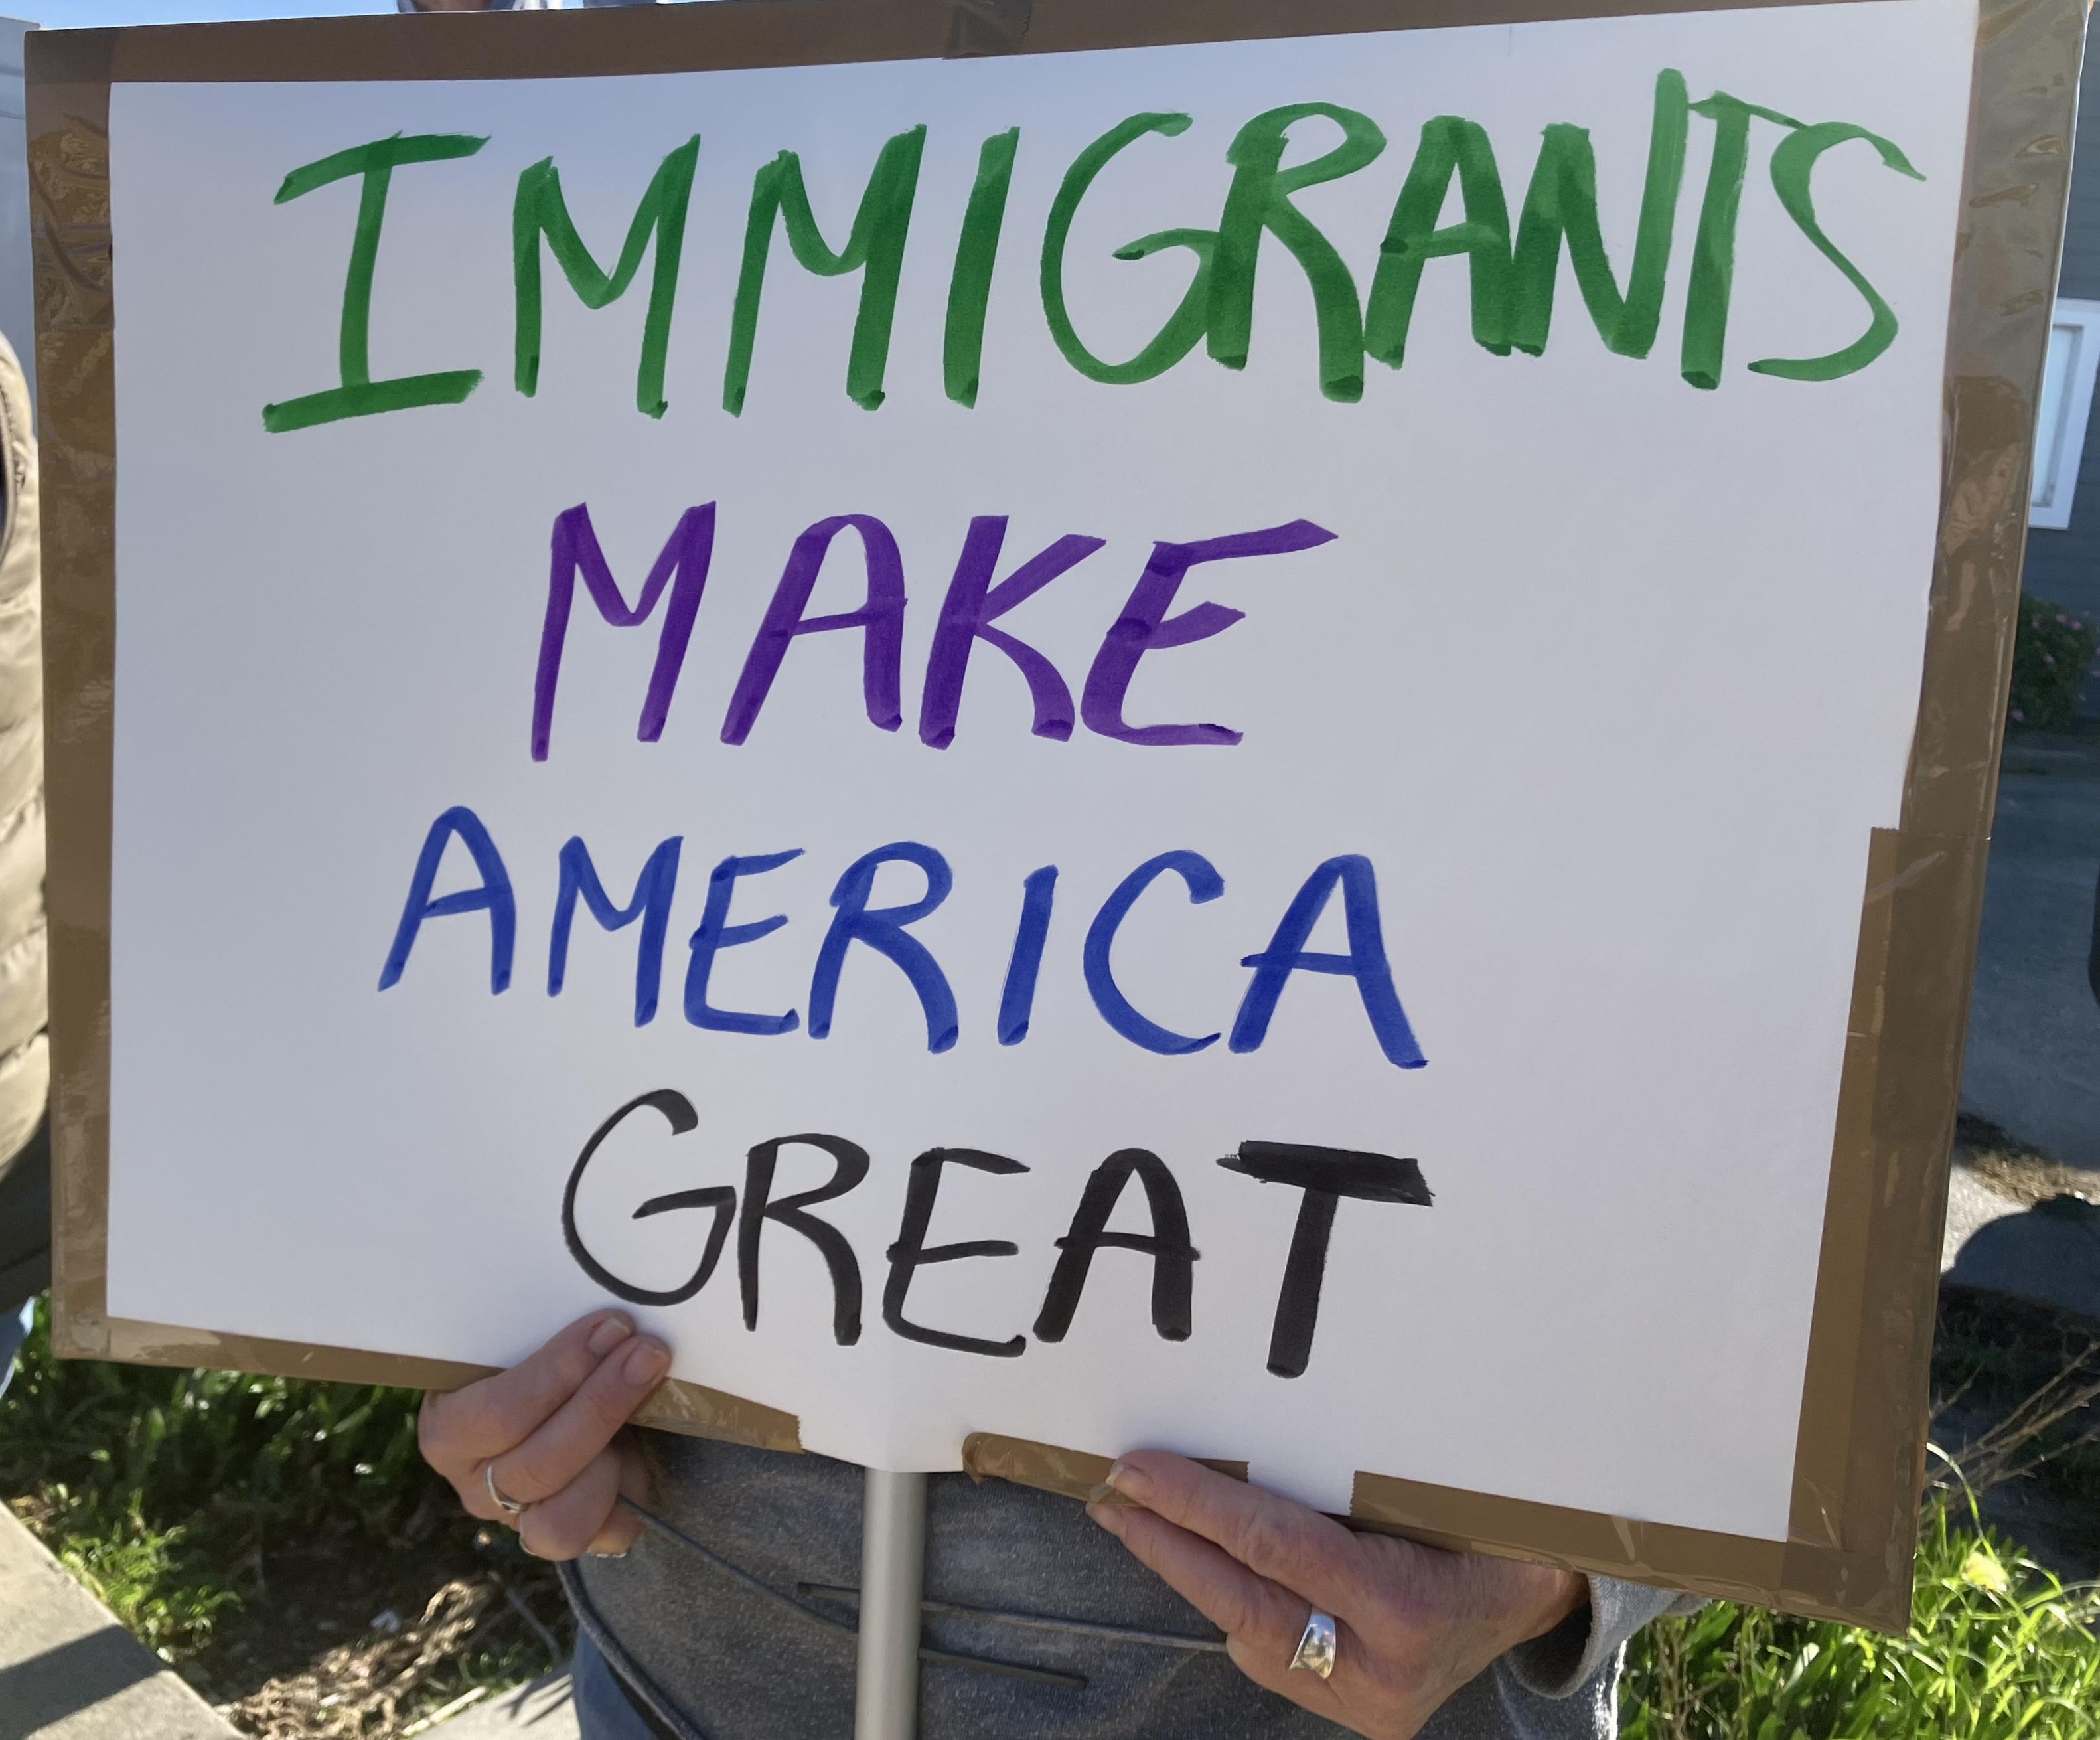 IMMIGRANTS
MAKE
AMERICA
GREAT